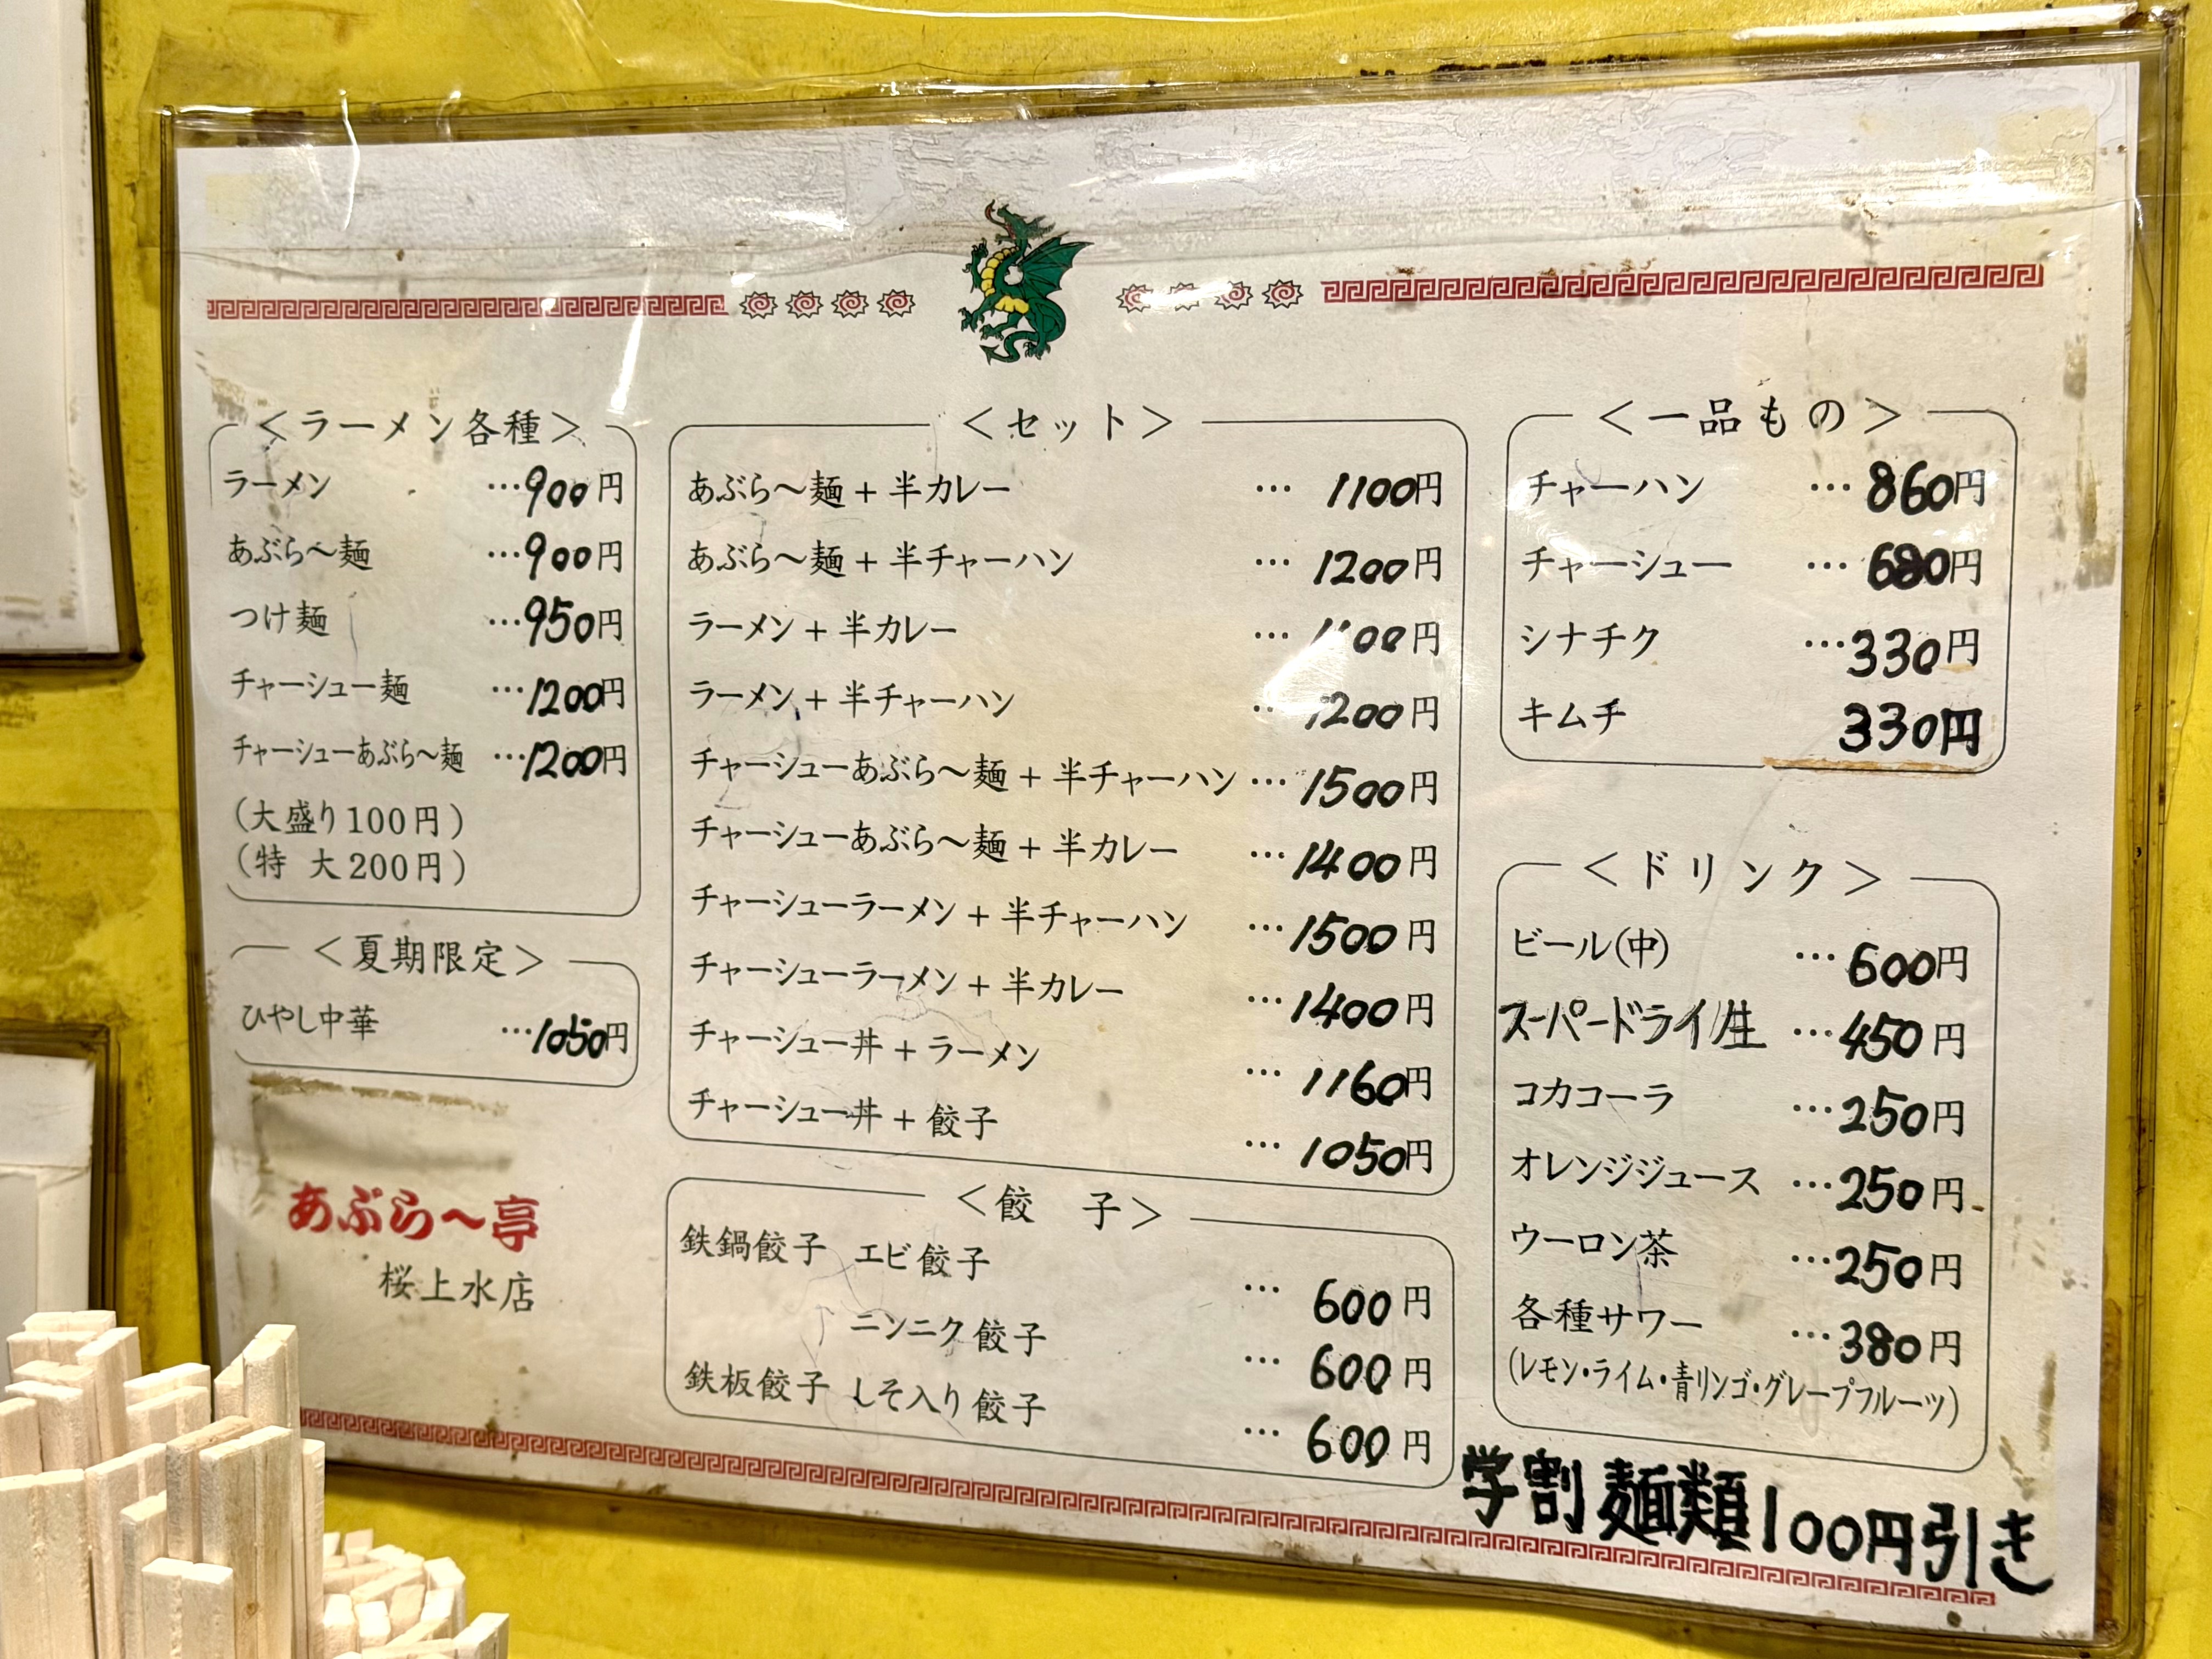 ＜ラーメン各種＞
ラーメン …900円
あぶら〜麺 …900円
つけ麺 …950円
チャーシュー麺 …1200円
チャーシューあぶら〜麺 …1200円
(大盛り100円)
(特 大200円)
＜夏期限定＞
ひやし中華 …1050円
あぶら〜亭
桜上水店
＜セット＞
あぶら〜麺 + 半カレー … 1100円
あぶら〜麺 + 半チャーハン … 1200円
ラーメン + 半カレー … 1100円
ラーメン + 半チャーハン … 1200円
チャーシューあぶら〜麺 + 半チャーハン … 1500円
チャーシューあぶら〜麺 + 半カレー … 1400円
チャーシューラーメン + 半チャーハン … 1500円
チャーシューラーメン + 半カレー … 1400円
チャーシュー丼 + ラーメン … 1160円
チャーシュー丼 + 餃子 … 1050円
＜餃 子＞
鉄鍋餃子 エビ餃子 … 600円
ニンニク餃子 … 600円
鉄板餃子 しそ入り餃子 … 600円
＜一品もの＞
チャーハン … 860円
チャーシュー … 680円
シナチク …330円
キムチ 330円
＜ドリンク＞
ビール(中) … 600円
スーパードライ/生 …450円
コカコーラ …250円
オレンジジュース …250円
ウーロン茶 …250円
各種サワー …380円
(レモン・ライム・青リンゴ・グレープフルーツ)
学割 麺類100円引き